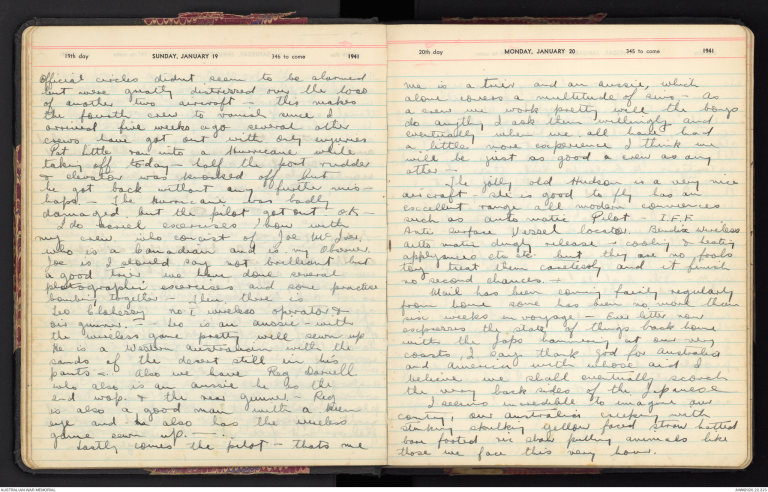 19th day SUNDAY, JANUARY 19 346 to come 1941
Official circles didnt seem to be alarmed
but were greatly distressed over the loss
of another two aircraft - this makes
the fourth crew to vanish since I
arrived five weeks ago several other
crews have got out with only injuries
Pat Little ran into a Hurricane while
taking off today - half the port rudder
& elevator was knocked off but
he got back without any further mis-
haps - The Hurricane was badly
damaged but the pilot got out ok -
I do several exercises now with
my crew who consist of Joe
who is a Canadian and is my Observer
Joe is I should say not brilliant but
a good trier we have done several
photographic exercises and some practice
bombing together - Then there is
Leo no 1 wireless operator &
air gunner - Leo is an aussie - with
the wireless game pretty well sewn up
He is a Western Australian with the
sands of the desert still in his
pants - Also we have Reg
who also is an aussie he is the
2nd wop. & the rear gunner - Reg
is also a good man with a keen
eye and he also has the wireless
game sewn up. -
Lastly comes the pilot - thats me
20th day MONDAY, JANUARY 20 345 to come 1941
me is a trier and an aussie, which
alone covers a multitude of sins - As
a crew we work pretty well the boys
do anything I ask them willingly and
eventually when we all have had
a little more experience I think we
will be just as good a crew as any
other -
The jolly old Hudson is a very nice
aircraft she is good to fly has an
excellent range all modern conveniences
such as automatic Pilot - I.F.F
Anti Surface Vessel locator, Bendix wireless
Auto matic dingy release - cooling & heating
appliances etc etc but they are no fools
toy, treat them carelessly and it
no second chances -
Mail has been coming fairly regularly
from home some has been no more than
six weeks on voyage - Ever letter now
expresses the state of things back home
with the Japs hammering at our very
coasts, I say thank god for Australia
and America with whose aid I
believe we shall eventually scorch
the very back sides of the Japanese
I seems incredible to imagine our
country, our Australia creeping with
stinking skulking yellow faced straw hatted
bare footed ric shaw pulling animals like
those we face this very hour.
AUSTRALIAN WAR MEMORIAL